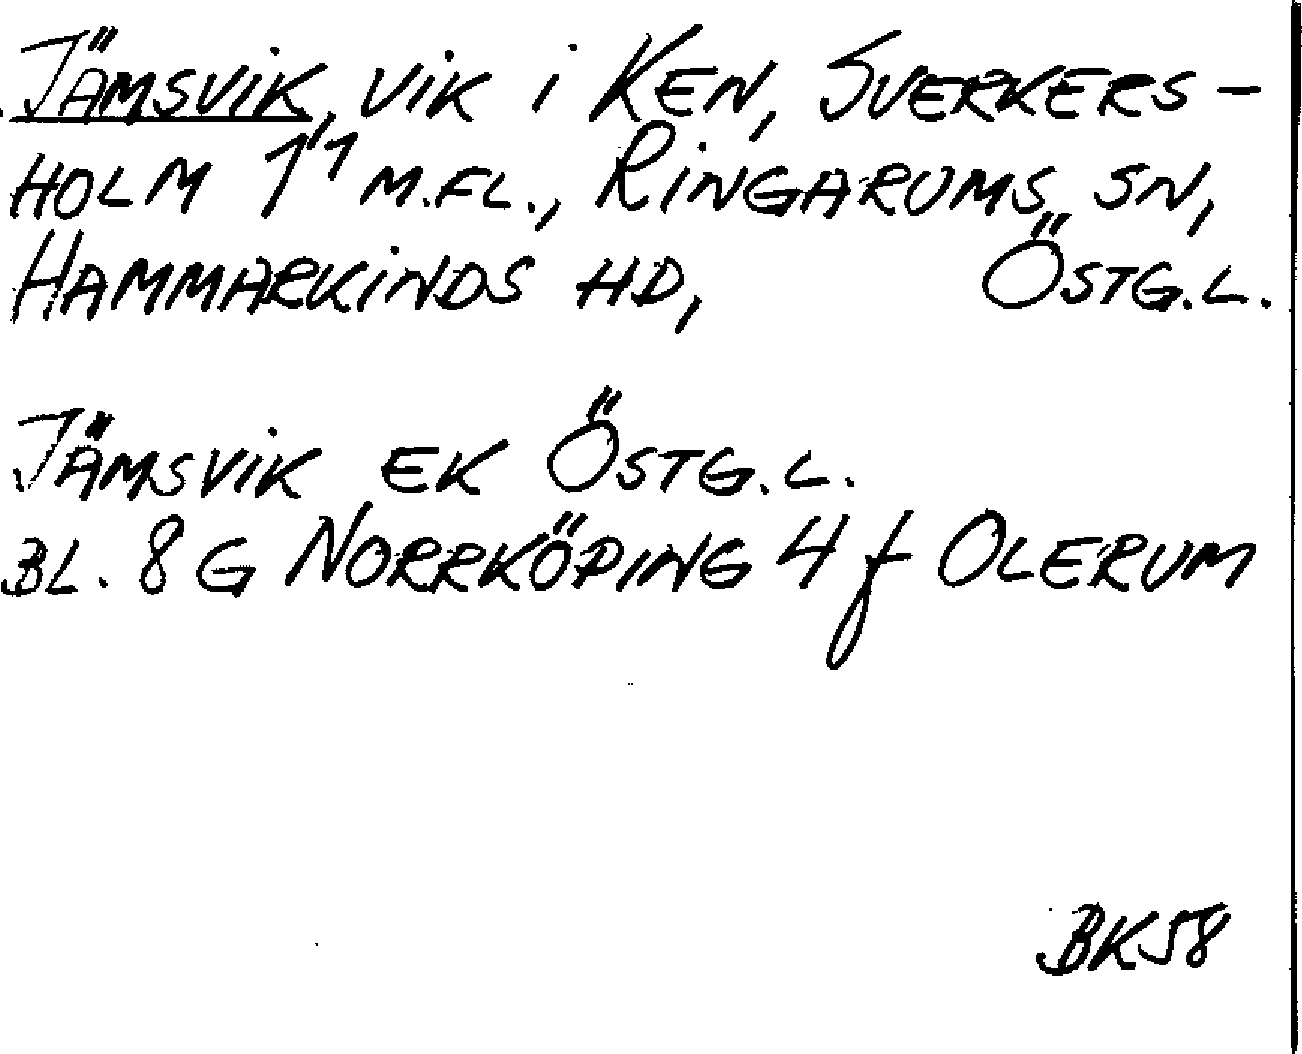 JÄMSVIK, VIK I KEN, SVERKERS-
HOLM 1/1 M.FL., RINGARUMS SN,
HAMMARKINDS HD, ÖSTG.L.
JÄMSVIK EK ÖSTG.L.
BL. 8G NORRKÖPING 4f OLERUM
BK58